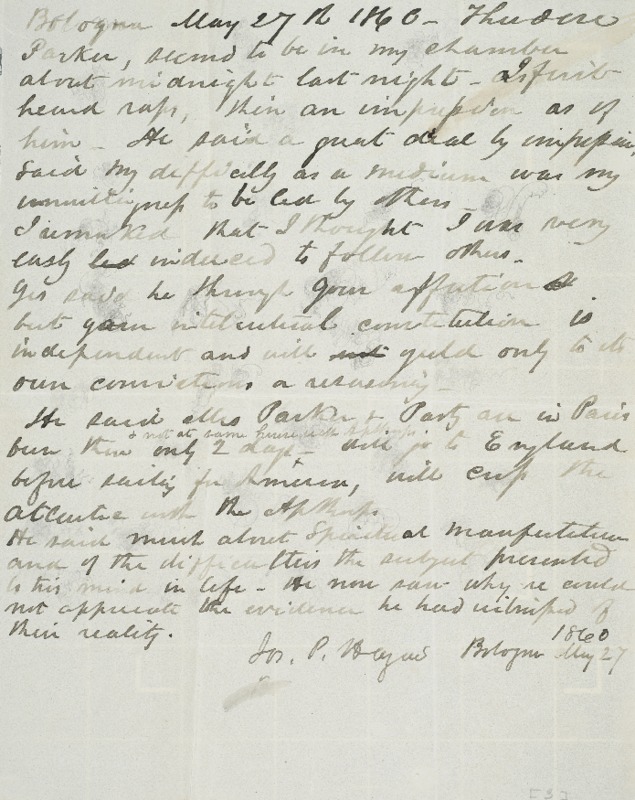 Bologna May 27th 1860 - Theodore
Parker, seemed to be in my chamber
about midnight last night - I first
heard raps, then an impression as of
him - He said a great deal by impression,
said my difficulty as a medium was my
unwillingness to be led by others
I remarked that I thought I was very
easly led induced to follow others -
Yes said he through your affections
but your intellectual constitution is
independent and will not yield only to its
own convictions or reasoning -
He said Mrs Parker & Party are in Paris
& not at same house with Apthorps
been there only 2 days - will go to England
before sailing for America, will cross the
Atlantic with the Apthorps
He said much about Spiritual manifestation
and of the difficulties the subject presented
to his mind in life - He now saw why he could
not appreciate the evidence he had witnessed of
their reality.
1860
Jos. P. Bologna May 27
[3]